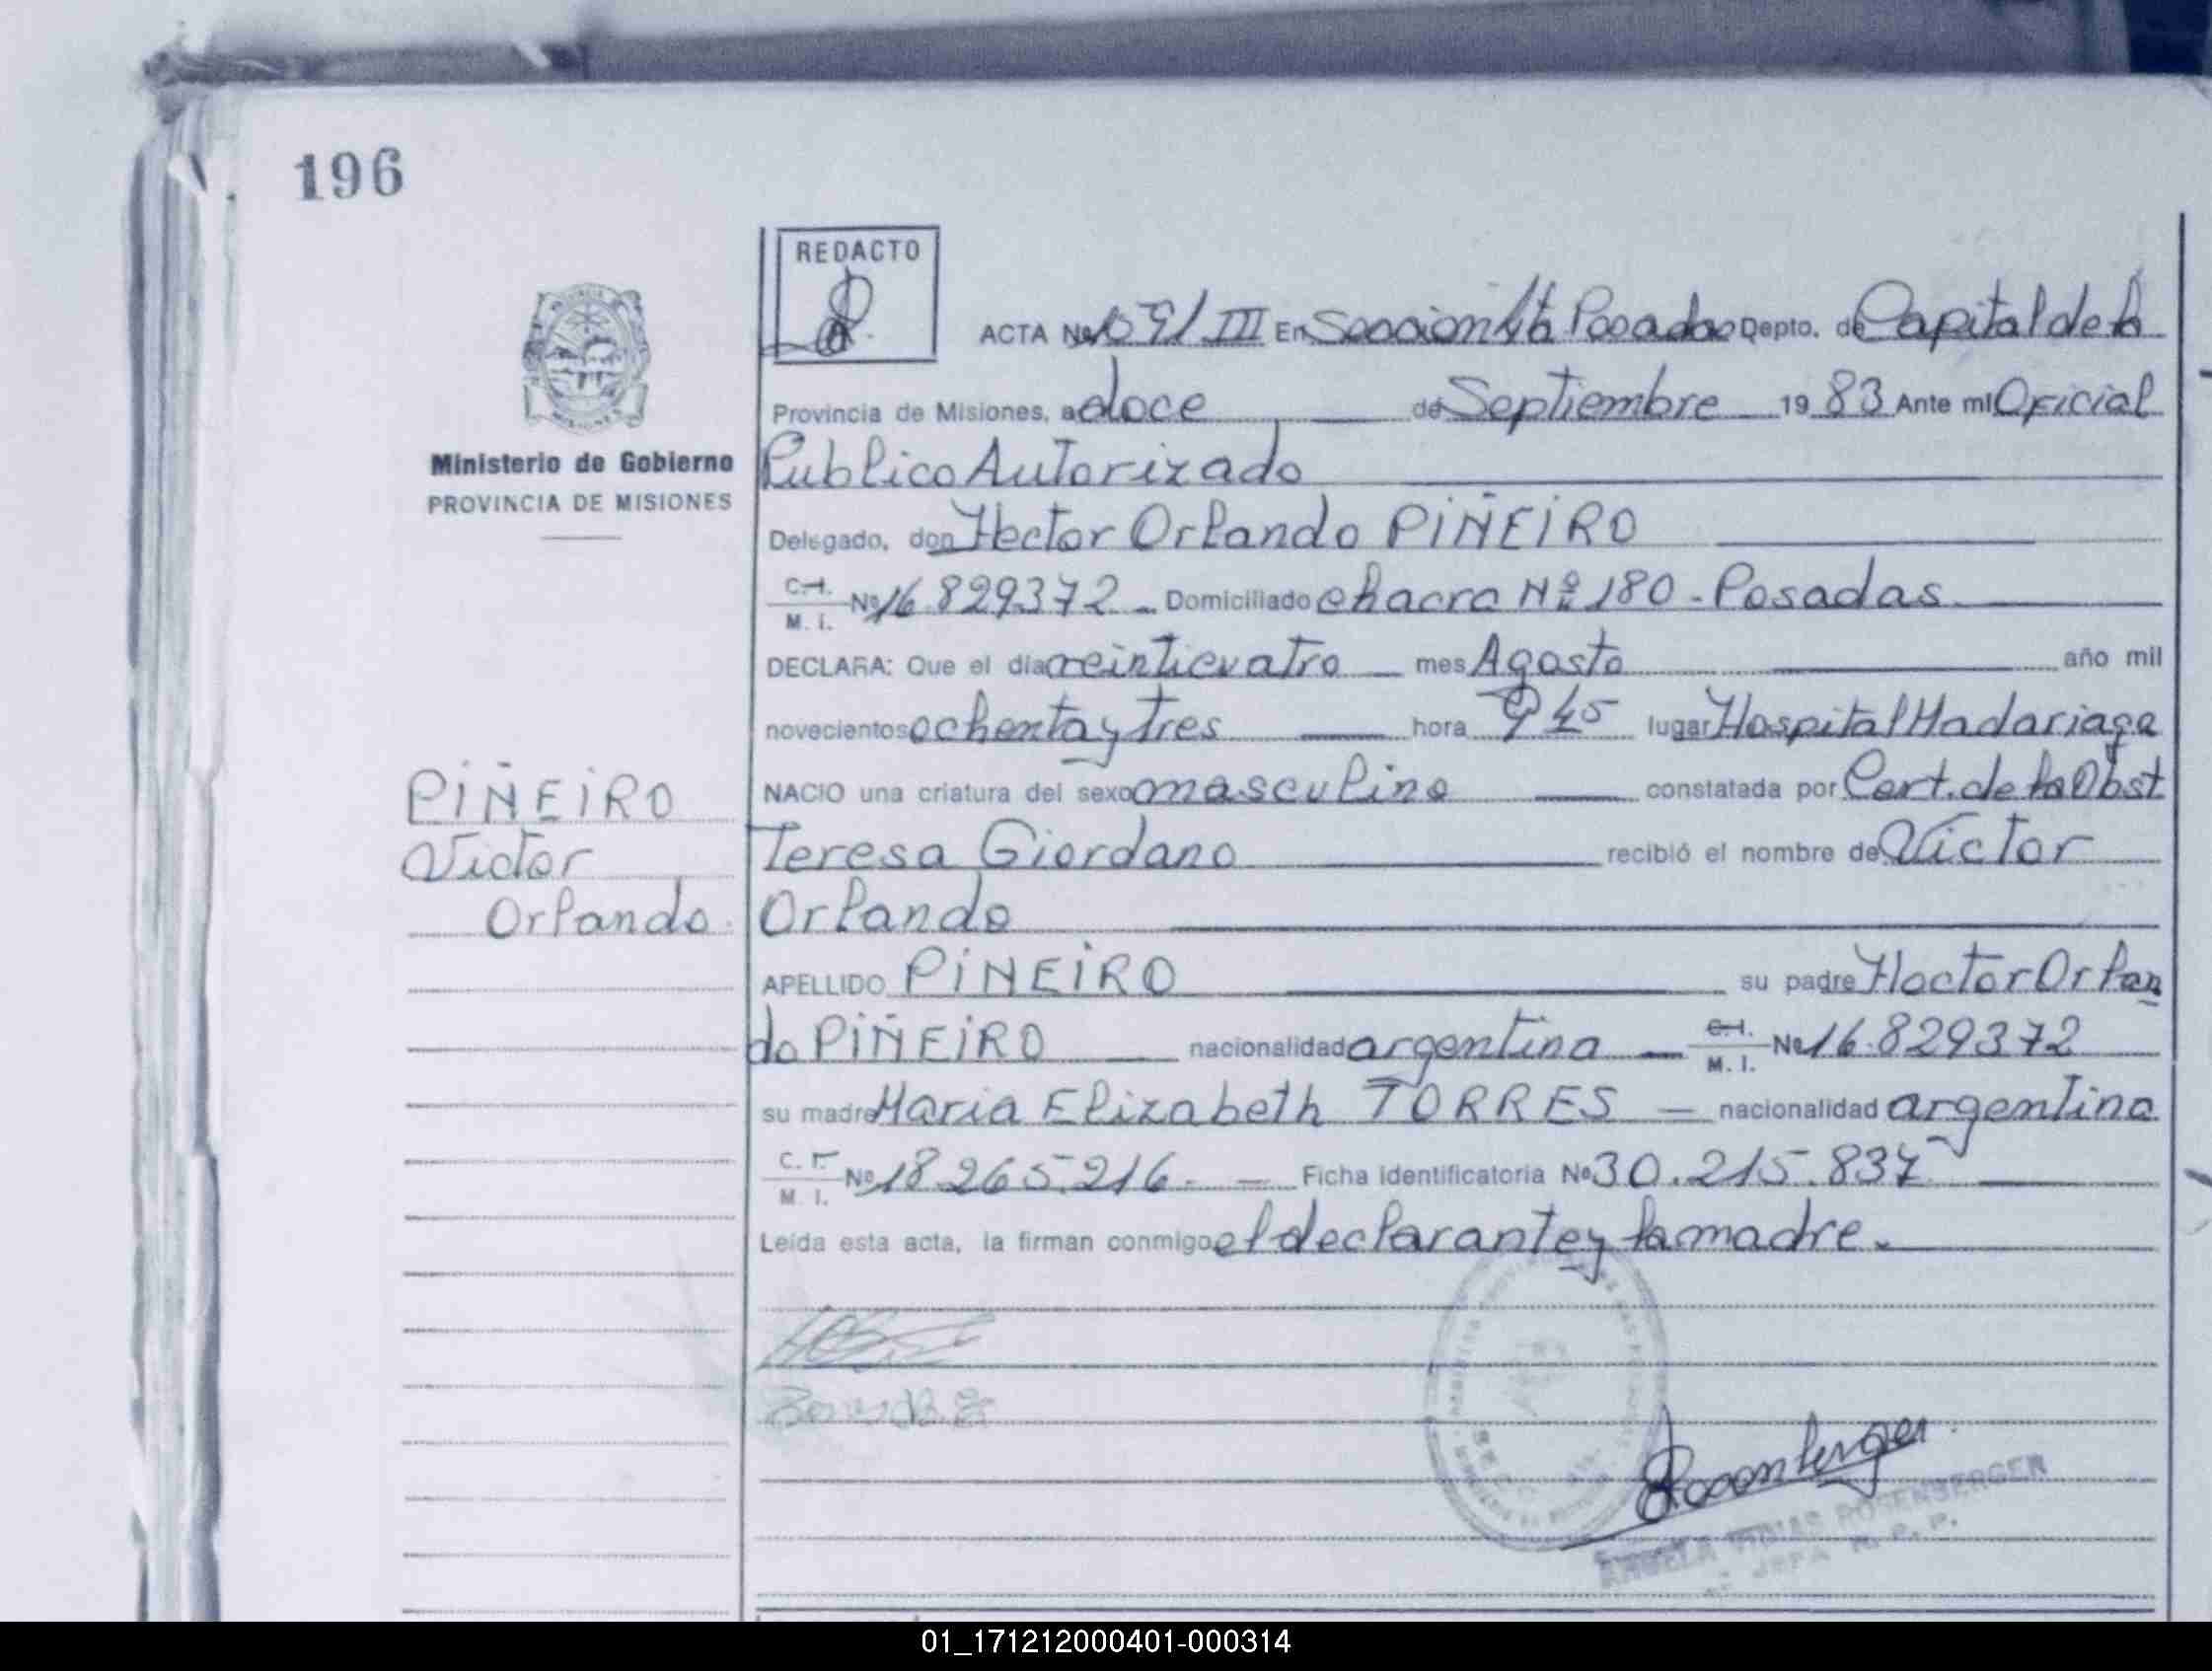 196
REDACTO
ACTA Nº /III En Seccion 4ta Posadas Depto. de Capital de la
Provincia de Misiones, a doce de Septiembre 1983 Ante mi Oficial
Ministerio de Gobierno
PROVINCIA DE MISIONES
Publico Autorizado
Delegado, don Hector Orlando PIÑEIRO
C.I. M. I. Nº 16.829372 - Domiciliado chacra Nº 180 - Posadas
DECLARA: Que el día veinticuatro mes Agosto año mil
novecientos ochenta y tres hora 9 45 lugar Hospital Madariaga
NACIO una criatura del sexo masculino constatada por Cert. de la Obst
PIÑEIRO
Victor
Orlando.
Teresa Giordano recibió el nombre de Victor
Orlando
APELLIDO PIÑEIRO su padre Hector Orlan
do PIÑEIRO nacionalidad argentina C.I. M. I. Nº 16.829372
su madre Maria Elizabeth TORRES nacionalidad argentina
C. I. M. I. Nº 18.265.216. Ficha Identificatoria Nº 30.215.837
Leída esta acta, la firman conmigo el declarante y la madre.
Rosenberger
ROSENBERGER
JEFA R. P. P.
01_171212000401-000314